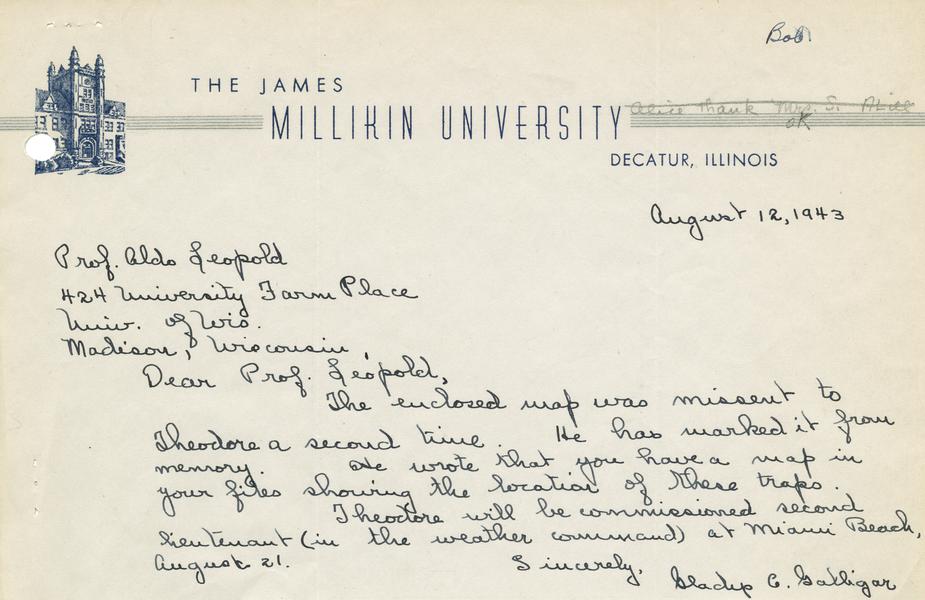 Bob
THE JAMES
MILLIKIN UNIVERSITY
Alice thank Mrs. S. Alice
OK
DECATUR, ILLINOIS
August 12, 1943
Prof. Aldo Leopold
424 University Farm Place
Univ. of Wis.
Madison, Wisconsin,
Dear Prof. Leopold,
The enclosed map was missent to
Theodore a second time. He has marked it from
memory. He wrote that you have a map in
your files showing the location of these traps.
Theodore will be commissioned second
lieutenant (in the weather command) at Miami Beach,
August 21. Sincerely,
Gladys C. Galligar